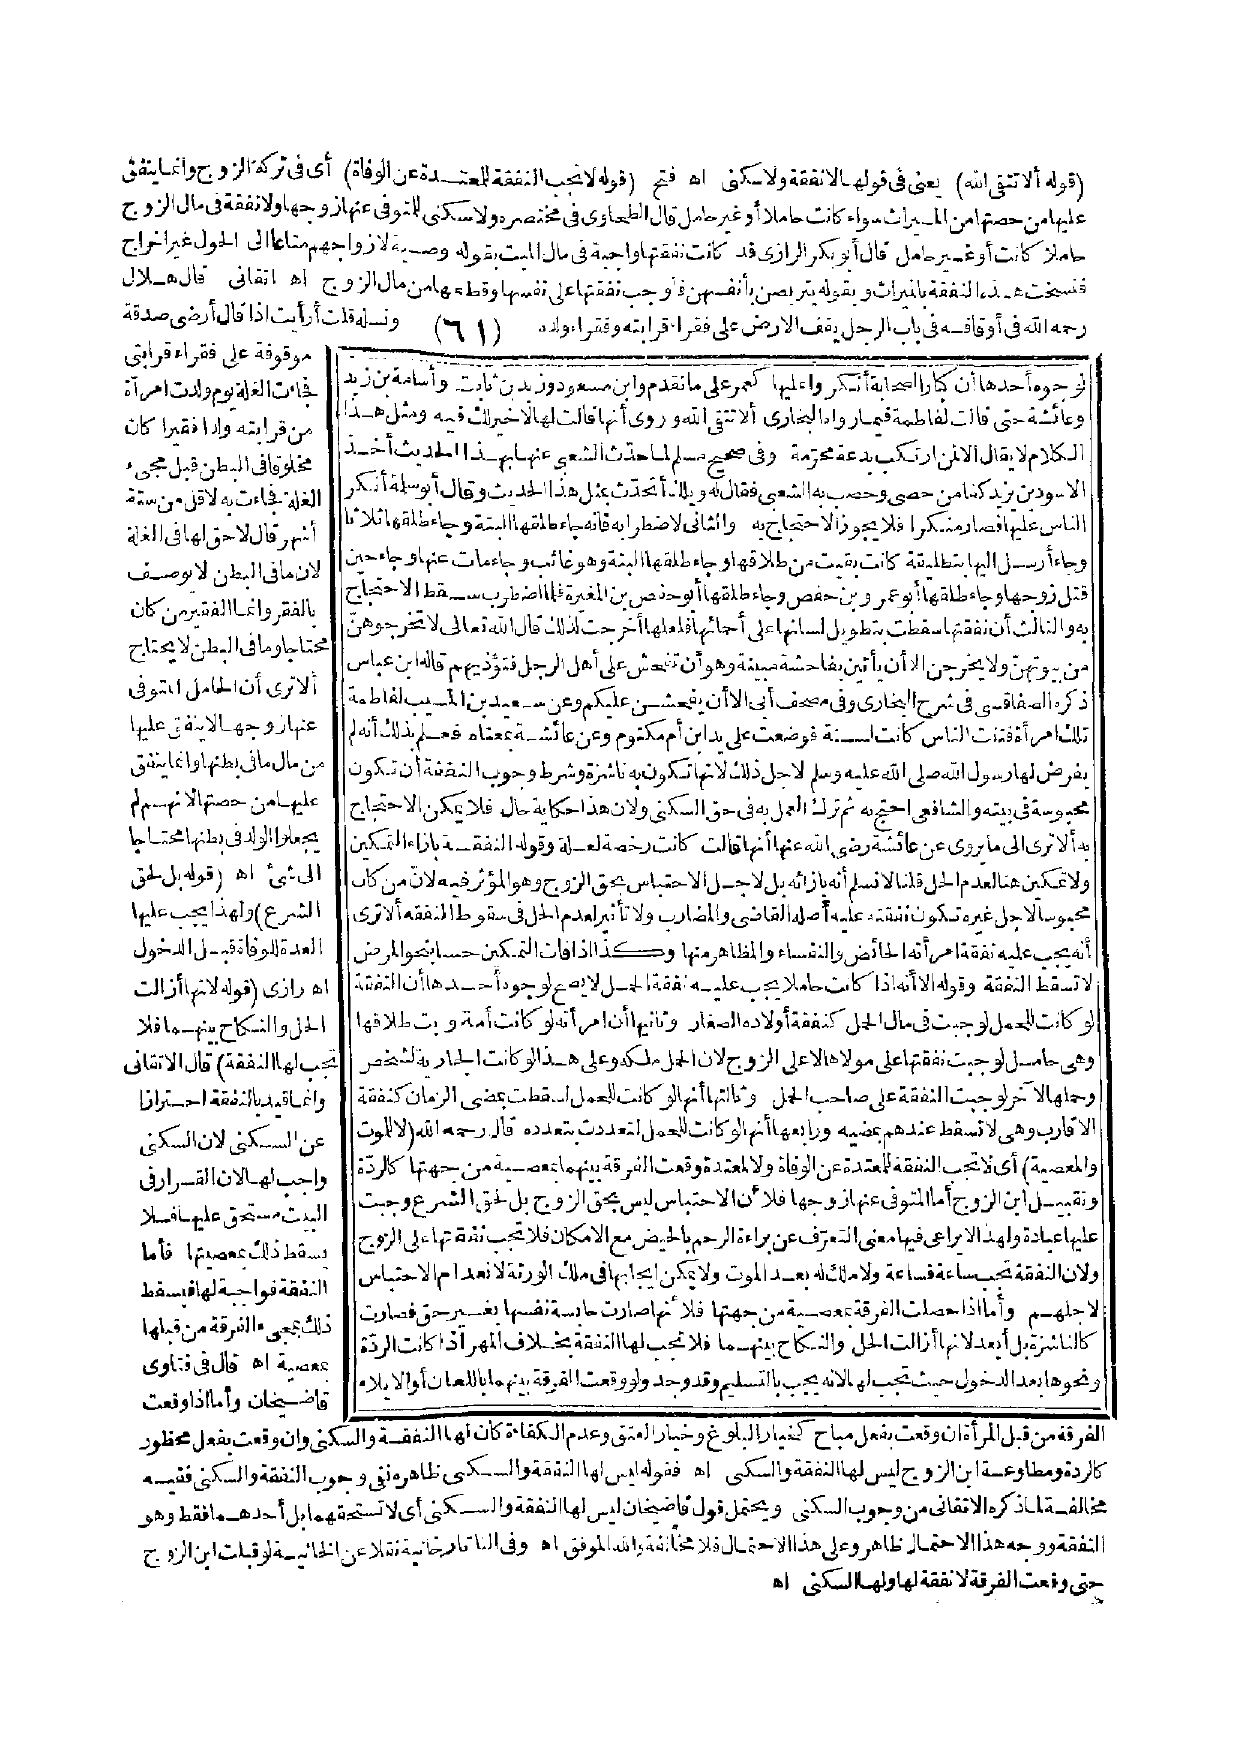 (قوله ألا تتقى الله) يعنى فى قولها لا نفقة ولا سكنى اه فتح (قوله لا تجب النفقة للمعتدة عن الوفاة) أى فى تركة الزوج وانما ينفق
عليها من حصتها من الميراث سواء كانت حاملا أو غير حامل قال الطحاوى فى مختصره ولا سكنى للمتوفى عنها زوجها ولا نفقة فى مال الزوج
حاملا كانت أو غير حامل قال أبو بكر الرازى قد كانت نفقتها واجبة فى مال الميت بقوله وصية لازواجهم متاعا الى الحول غير اخراج
فنسخت هذه النفقة بالميراث وبقوله يتربصن بأنفسهن فأوجب نفقتها على نفسها وقطعها من مال الزوج اه اتقانى قال هلال
رحمه الله فى أوقافه فى باب الرجل يقف الارض على فقراء قرابته وفقراء ولده (٦١) ونسله قلت أرأيت اذا قال أرضى صدقة
موقوفة على فقراء قرابتى
فجاءت الغلة يوم ولدت امرأة
من قرابته ولدا فقيرا كان
مخلوقا فى البطن قبل مجىء
الغلة فجاءت به لاقل من ستة
أشهر قال لا حق لها فى الغلة
لان ما فى البطن لا يوصف
بالفقر وانما الفقير من كان
محتاجا وما فى البطن لا يحتاج
ألا ترى أن الحامل المتوفى
عنها زوجها لا ينفق عليها
من مال ما فى بطنها وانما ينفق
عليها من حصتها لانهم لم
يجعلوا الولد فى بطنها محتاجا
الى شئ اه (قوله بل لحق
الشرع) ولهذا يجب عليها
العدة للوفاة قبل الدخول
اه رازى (قوله لانها أزالت
الحل والنكاح بينهما فلا
تجب لها النفقة) قال الاتقانى
وانما قيد بالنفقة احترازا
عن السكنى لان السكنى
واجب لها لان القرار فى
البيت مستحق عليها فلا
يسقط ذلك بمعصيتها فأما
النفقة فواجبة لها فيسقط
ذلك بمجىء الفرقة من قبلها
بمعصية اه قال فى فتاوى
قاضيخان وأما اذا وقعت
لوجوه أحدها أن كبار الصحابة أنكروا عليها كعمر على ما تقدم وابن مسعود وزيد بن ثابت وأسامة بن زيد
وعائشة حتى قالت لفاطمة فيما رواه البخارى ألا تتقى الله وروى أنها قالت لها لا خير لك فيه ومثل هذا
الكلام لا يقال الا لمن ارتكب بدعة محرمة وفى صحيح مسلم لما حدث الشعبى عنها بهذا الحديث أخذ
الاسود بن يزيد كفا من حصى وحصب به الشعبى فقال له ويلك أتحدث بمثل هذا الحديث وقال أبو سلمة أنكر
الناس عليها فصار منكرا فلا يجوز الاحتجاج به والثانى لاضطرابه فانه جاء طلقها البتة وجاء طلقها ثلاثا
وجاء أرسل اليها بتطليقة كانت بقيت من طلاقها وجاء طلقها البتة وهو غائب وجاء مات عنها وجاء حين
قتل زوجها وجاء طلقها أبو عمرو بن حفص وجاء طلقها أبو حفص بن المغيرة فلما اضطرب سقط الاحتجاج
به والثالث أن نفقتها سقطت بتطويل لسانها على أحمائها فلعلها أخرجت لذلك قال الله تعالى لا تخرجوهن
من بيوتهن ولا يخرجن الا أن يأتين بفاحشة مبينة وهو أن تفحش على أهل الرجل فتؤذيهم قاله ابن عباس
ذكره الصفاقسى فى شرح البخارى وفى مصحف أبى الا أن يفحشن عليكم وعن سعيد بن المسيب لفاطمة
تلك امرأة فتنت الناس كانت لسنة فوضعت على يد ابن أم مكتوم وعن عائشة بمعناه فعلم بذلك أنه لم
يفرض لها رسول الله صلى الله عليه وسلم لاجل ذلك لانها تكون به ناشزة وشرط وجوب النفقة أن تكون
محبوسة فى بيته والشافعى احتج به ثم ترك العمل به فى حق السكنى ولان هذا حكاية حال فلا يمكن الاحتجاج
به ألا ترى الى ما يروى عن عائشة رضى الله عنها أنها قالت كانت رخصة لعلة وقوله النفقة بازاء التمكين
ولا تمكين هنا لعدم الحل قلنا لا نسلم أنه بازائه بل لاجل الاحتباس بحق الزوج وهو المؤثر فيه لان من كان
محبوسا لاجل غيره تكون نفقته عليه أصله القاضى والمضارب ولا تأثير لعدم الحل فى سقوط النفقة ألا ترى
أنه يجب عليه نفقة امرأته الحائض والنفساء والمظاهر منها وكذا اذا فات التمكين حسا بنحو المرض
لا تسقط النفقة وقوله الا أنه اذا كانت حاملا يجب عليه نفقة الحمل لا يصح لوجوه أحدها أن النفقة
لو كانت للحمل لوجبت فى مال الحمل كنفقة أولاده الصغار وثانيها أن امرأته لو كانت أمة وبت طلاقها
وهى حامل لوجبت نفقتها على مولاها لا على الزوج لان الحمل ملكه وعلى هذا لو كانت الجارية لشخص
وحملها لآخر لوجبت النفقة على صاحب الحمل وثالثها أنها لو كانت للحمل لسقطت بمضى الزمان كنفقة
الاقارب وهى لا تسقط عندهم بمضيه ورابعها أنها لو كانت للحمل لتعددت بتعدده قال رحمه الله (لا للموت
والمعصية) أى لا تجب النفقة للمعتدة عن الوفاة ولا لمعتدة وقعت الفرقة بينهما بمعصية من جهتها كالردة
وتقبيل ابن الزوج أما المتوفى عنها زوجها فلأن الاحتباس ليس بحق الزوج بل لحق الشرع وجبت
عليها عبادة ولهذا لا يراعى فيها معنى التعرف عن براءة الرحم بالحيض مع الامكان فلا تجب نفقتها على الزوج
ولان النفقة تجب ساعة فساعة ولا ملك له بعد الموت ولا يمكن ايجابها فى ملك الورثة لانعدام الاحتباس
لاجلهم وأما اذا حصلت الفرقة بمعصية من جهتها فلأنها صارت حابسة نفسها بغير حق فصارت
كالناشزة بل أبعد لانها أزالت الحل والنكاح بينهما فلا تجب لها النفقة بخلاف المهر اذا كانت الردة
ونحوها بعد الدخول حيث تجب لها لانه يجب بالتسليم وقد وجد ولو وقعت الفرقة بينهما باللعان أو الايلاء
الفرقة من قبل المرأة ان وقعت بفعل مباح كخيار البلوغ وخيار العتق وعدم الكفاءة كان لها النفقة والسكنى وان وقعت بفعل محظور
كالردة ومطاوعة ابن الزوج ليس لها النفقة والسكنى اه فقوله ليس لها النفقة والسكنى ظاهره نفى وجوب النفقة والسكنى ففيه
مخالفة لما ذكره الاتقانى من وجوب السكنى ويحتمل قول قاضيخان ليس لها النفقة والسكنى أى لا تستحقهما بل أحدهما فقط وهو
النفقة ووجه هذا الاحتمال ظاهر وعلى هذا الاحتمال فلا مخالفة والله الموفق اه وفى التاتارخانية نقلا عن الخانية لو قبلت ابن الزوج
حتى وقعت الفرقة لا نفقة لها ولها السكنى اه